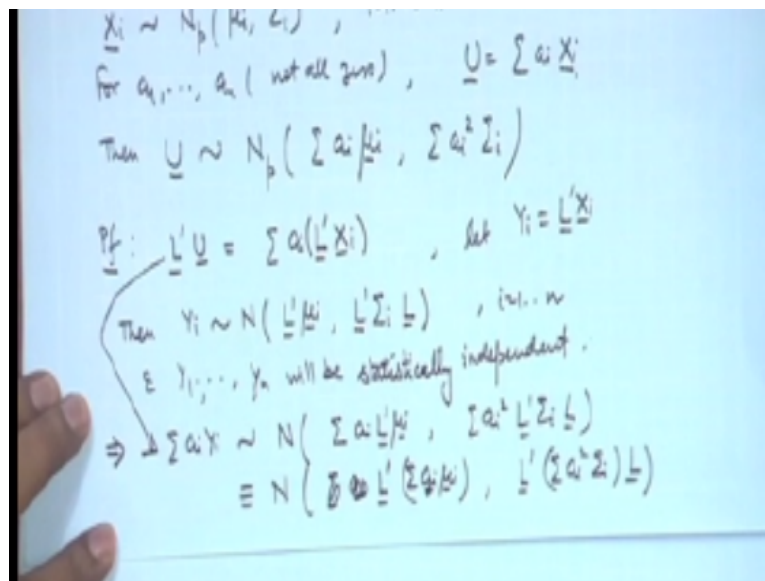 X̲i ~ N_p(μ̲i, Σi) ,
For a₁,..., aₙ ( not all zero) , U̲ = Σ ai X̲i
Then U̲ ~ N_p( Σ ai μ̲i , Σ ai² Σi )
Pf : L̲'U̲ = Σ ai(L̲'X̲i) , let Yi = L̲'X̲i
Then Yi ~ N( L̲'μ̲i , L̲'Σi L̲ ) , i=1...n
& Y₁,..., Yₙ will be statistically independent.
⇒ Σ ai Yi ~ N( Σ ai L̲'μ̲i , Σ ai² L̲'Σi L̲ )
≡ N( L̲'(Σ ai μ̲i) , L̲'(Σ ai² Σi) L̲ )